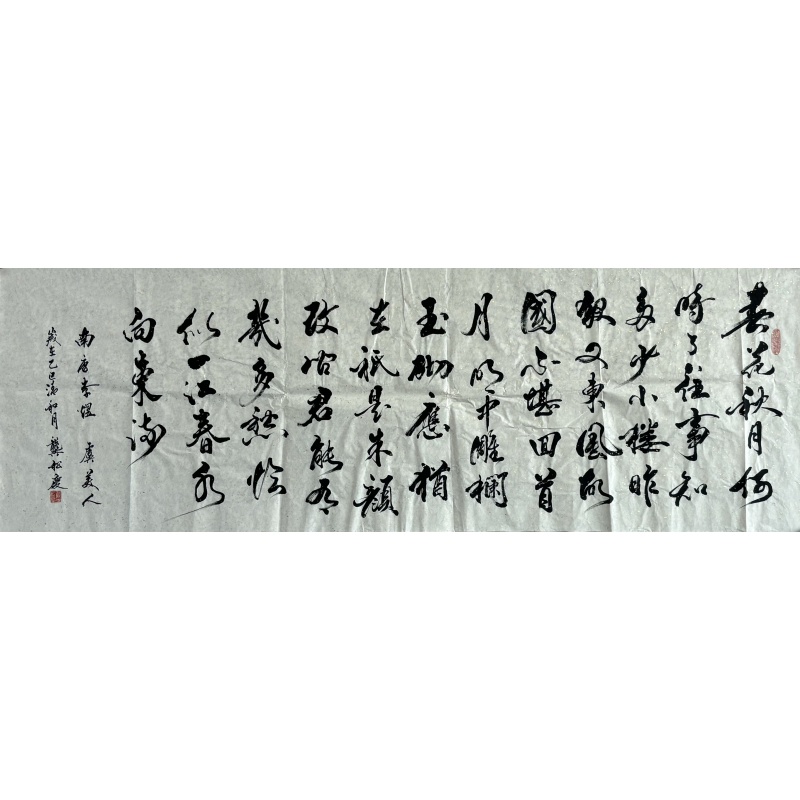 春花秋月何
時了往事知
多少小樓昨
夜又東風故
國不堪回首
月明中雕欄
玉砌應猶
在祇是朱顏
改問君能有
幾多愁恰
似一江春水
向東流
南唐李煜 虞美人
歲在乙巳清和月 龔松